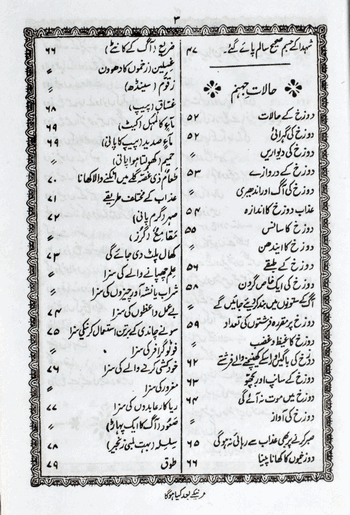 ۳
شہدا کے جسم صحیح سالم پائے گئے۔ ۴۷
حالات جہنم
دوزخ کے حالات ۵۲
دوزخ کی گہرائی ۵۲
دوزخ کی دیواریں ״
دوزخ کے دروازے ۵۳
دوزخ کی آگ اور اندھیری ״
عذاب دوزخ کا اندازہ ۵۴
دوزخ کا سانس ۵۵
دوزخ کا ایندھن ״
دوزخ کے طبقے ۵۶
دوزخ کی ایک خاص گردن ۵۸
آگ کے ستونوں میں بند کر دیئے جائیں گے ״
دوزخ پر مقررہ فرشتوں کی تعداد ۵۹
دوزخ کا غیظ و غضب ״
دوزخ کی باگیں اور اسکے کھینچنے والے فرشتے ۶۲
دوزخ کے سانپ اور بچھو ۶۲
دوزخ میں موت نہ آئے گی ۶۴
دوزخ کی آواز ״
صبر کرنے پر بھی عذاب سے رہائی نہ ہوگی ۶۵
دوزخیوں کا کھانا پینا ۶۶
ضریع (آگ کے کانٹے) ۶۶
غسلین (زخموں کا دھوون) ״
زقوم (سینڈھ) ״
غساق (پیپ) ۶۸
ماءٍ کالمہل (کیٹ) ۶۹
ماءٍ صدید (پیپ کا پانی) ۶۹
حمیم (کھولتا ہوا پانی) ״
طعام ذی غصۃ گلے میں اٹکنے والا کھانا ۷۰
عذاب کے مختلف طریقے ۷۱
صہر (گرم پانی) ۷۲
مقامع (گرز) ״
کھال پلٹ دی جائے گی ۷۳
علم چھپانے والے کی سزا ״
شراب یا نشہ آور چیزوں کی سزا ״
بے عمل واعظوں کی سزا ۷۴
سونے چاندی کے برتن استعمال کرنیکی سزا ۷۵
فوٹو گرافر کی سزا ״
خودکشی کرنے والے کی سزا ۷۶
مغرور کی سزا ״
ریاکار عابدوں کی سزا ۷۷
صعود (آگ کا ایک پہاڑ) ״
سلسلہ (بہت لمبی زنجیر) ۷۸
طوق ۷۹
مرنے کے بعد کیا ہوگا